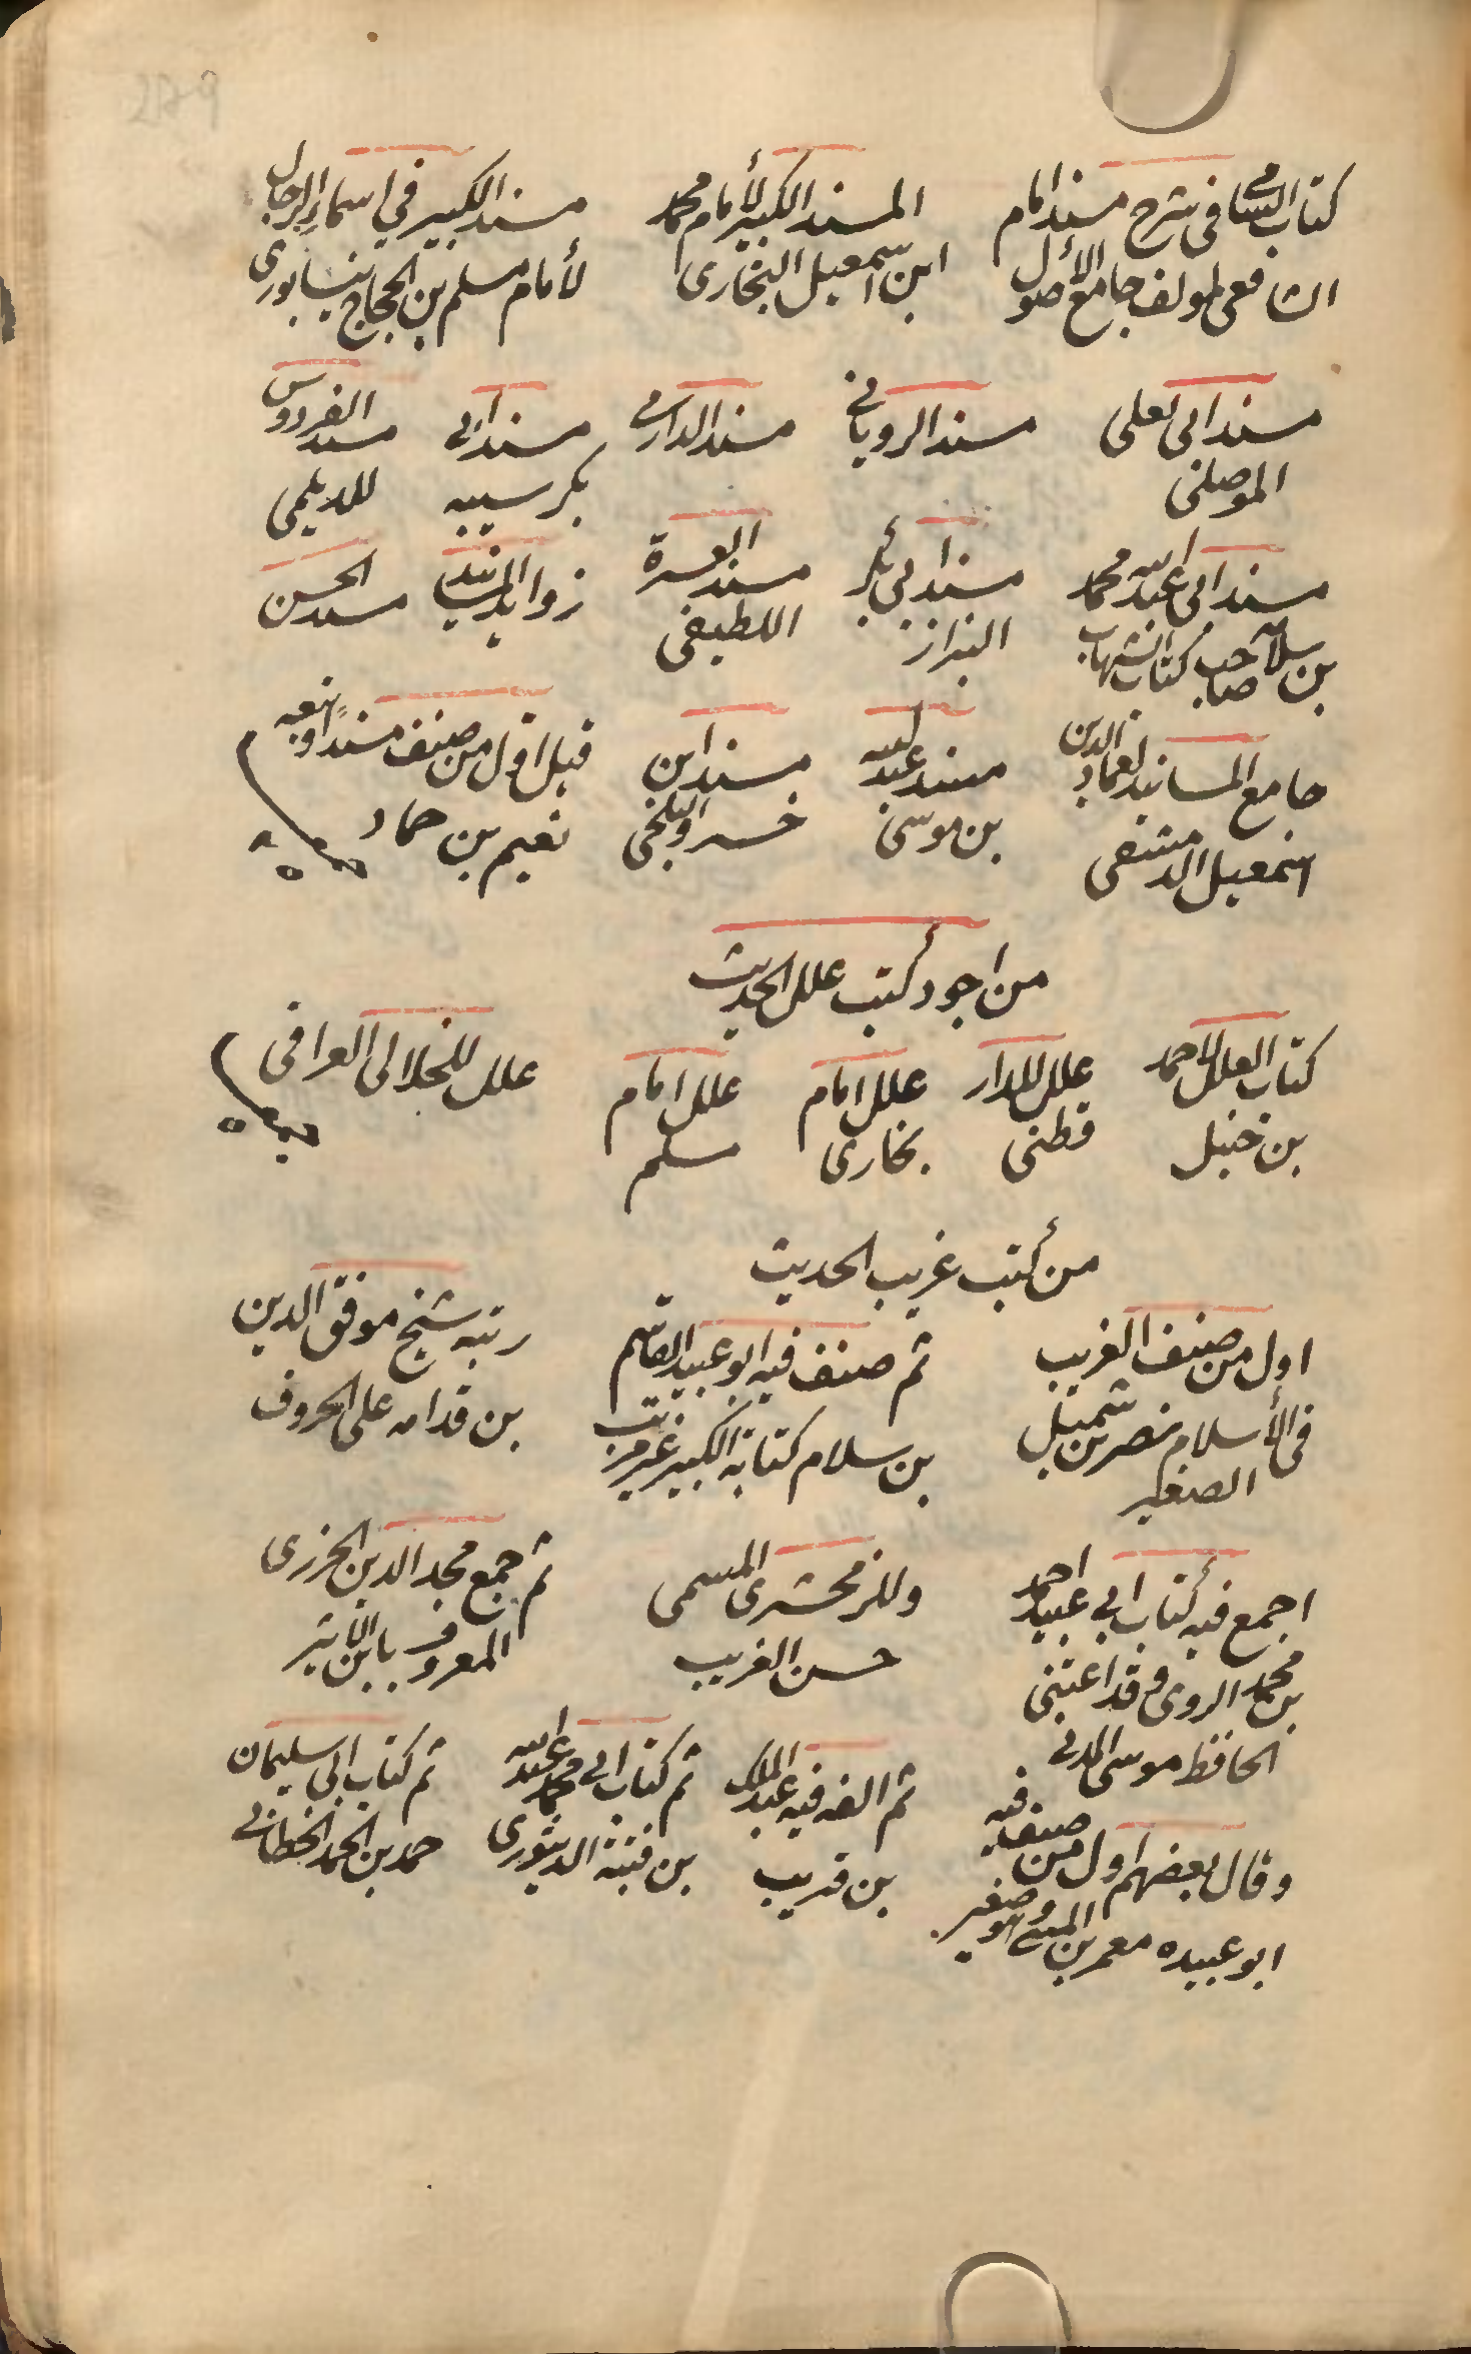 كتاب السامى فى شرح مسند امام
الشافعى لمولف جامع الأصول
المسند الكبير لأمام محمد
ابن اسمعيل البخارى
مسند الكبير فى اسماء الرجال
لأمام مسلم بن الحجاج نيسابورى
مسند ابى يعلى
الموصلى
مسند الرويانى
مسند الدارمى
مسند ابى
بكر شيبه
مسند الفردوس
للديلمى
مسند ابى عبد الله محمد
بن سلامه صاحب كتاب الشهاب
مسند ابى بكر
البزاز
مسند العسرة
اللطيفى
زوايد المسانيد
مسند الحسن
جامع المسانيد لعماد الدين
اسمعيل الدمشقى
مسند عبد الله
بن موسى
مسند ابن
خسرو البلخى
قيل اول من صنف مسنداً
نعيم بن حماد
من اجود كتب علل الحديث
كتاب العلل لأحمد
بن حنبل
علل للدار
قطنى
علل امام
بخارى
علل امام
مسلم
علل للخلالى العراقى
من كتب غريب الحديث
اول من صنف الغريب
فى الأسلام نضر بن شميل
الصغير
ثم صنف فيه ابو عبيد القاسم
بن سلام كتابه الكبير غير مرتب
رتبه شيخ موفق الدين
بن قدامه على الحروف
اجمع فيه كتاب ابى عبيد احمد
بن محمد الروى وقد اعتنى
الحافظ موسى المدنى
وللزمخشرى المسمى
حسن الغريب
ثم جمع مجد الدين الجزرى
المعروف بابن الأثير
وقال بعضهم اول من صنف فيه
ابو عبيده معمر بن المثنى وهو صغير
ثم الفه فيه عبد الملك
بن قريب
ثم كتاب ابى محمد عبد الله
بن قتيبة الدينورى
ثم كتاب ابى سليمان
حمد بن الحمد الخطابى